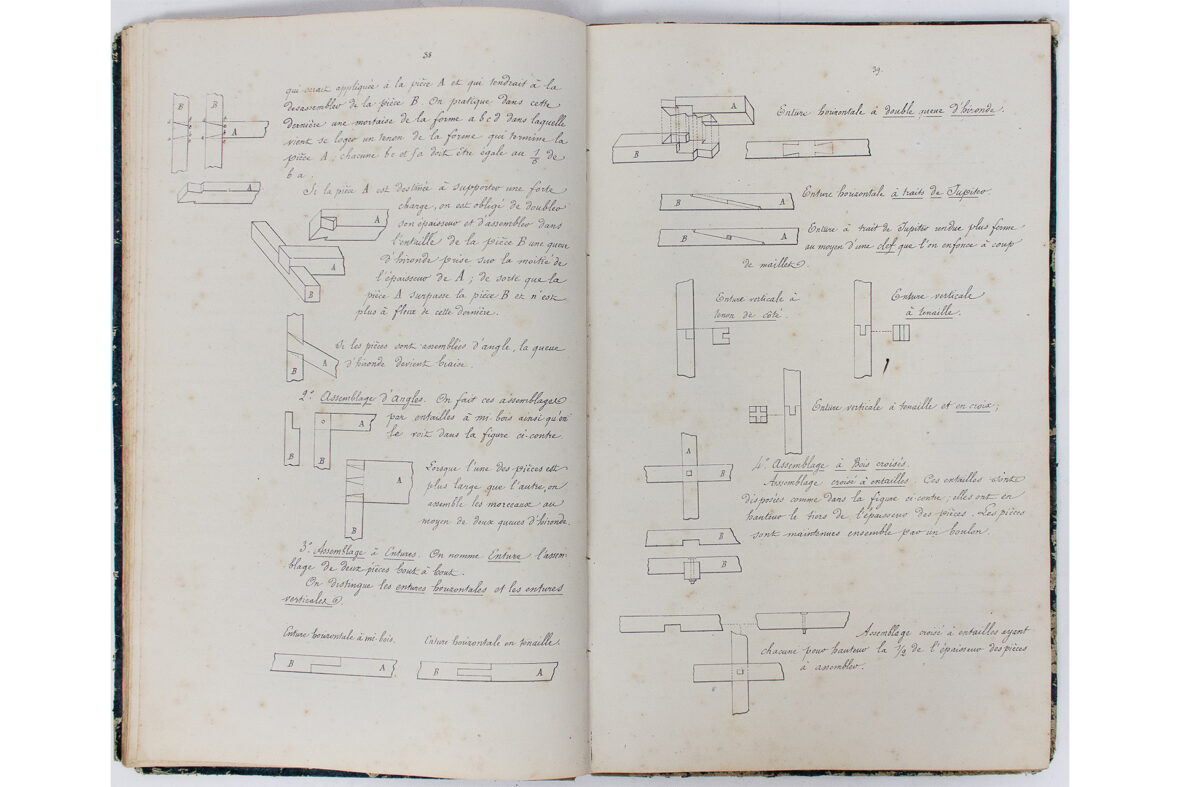 38
qui serait appliquée à la pièce A et qui tendrait à la
desassembler de la pièce B. On pratique dans cette
dernière une mortaise de la forme a b c d dans laquelle
vient se loger un tenon de la forme qui termine la
pièce A, chacune be et fa doit être égale au 1/5 de
b a.
Si la pièce A est destinée à supporter une forte
charge, on est obligé de doubler
son épaisseur et d'assembler dans
l'entaille de la pièce B une queue
d'hironde prise sur la moitié de
l'épaisseur de A ; de sorte que la
pièce A surpasse la pièce B et n'est
plus à fleur de cette dernière.
Si les pièces sont assemblées d'angle, la queue
d'hironde devient biaise.
2.° Assemblage d'Angles. On fait ces assemblages
par entailles à mi-bois ainsi qu'on
le voit dans la figure ci-contre.
Lorsque l'une des pièces est
plus large que l'autre, on
assemble les morceaux au
moyen de deux queues d'hironde.
3.° Assemblage à Entures. On nomme Enture l'assem-
blage de deux pièces bout à bout.
On distingue les entures horizontales et les entures
verticales.
Enture horizontale à mi-bois.
Enture horizontale en tenaille.
B A
B A
B B
A
A
A
A
B
A
B
A
B
B
A
B
A
39.
Enture horizontale à double queue d'hironde.
A
B
Enture horizontale à traits de Jupiter.
B A
Enture à trait de Jupiter rendue plus ferme
au moyen d'une clef que l'on enfonce à coup
de maillet.
B A
Enture verticale à
tenon de côté.
Enture verticale
à tenaille.
Enture verticale à tenaille et en croix ;
4.° Assemblage à Bois croisés.
Assemblage croisé à entailles. Ces entailles sont
disposées comme dans la figure ci-contre ; elles ont en
hauteur le tiers de l'épaisseur des pièces. Les pièces
sont maintenues ensemble par un boulon.
A
B
B
B
Assemblage croisé à entailles ayant
chacune pour hauteur la 1/2 de l'épaisseur des pièces
à assembler.